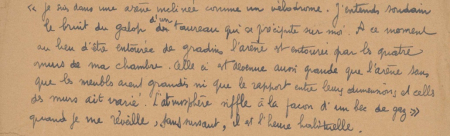 « je suis dans une arène inclinée comme un vélodrome. j'entends soudain
le bruit du galop d'un taureau qui se précipite sur moi. A ce moment
au lieu d'être entourée de gradins l'arène est entourée par les quatre
murs de ma chambre. Celle ci est devenue aussi grande que l'arène sans
que les meubles aient grandis ni que le rapport entre leurs dimensions et celles
des murs ait varié. L'atmosphère siffle à la façon d'un bec de gaz »
quand je me réveille, sursautant, il est l'heure habituelle.